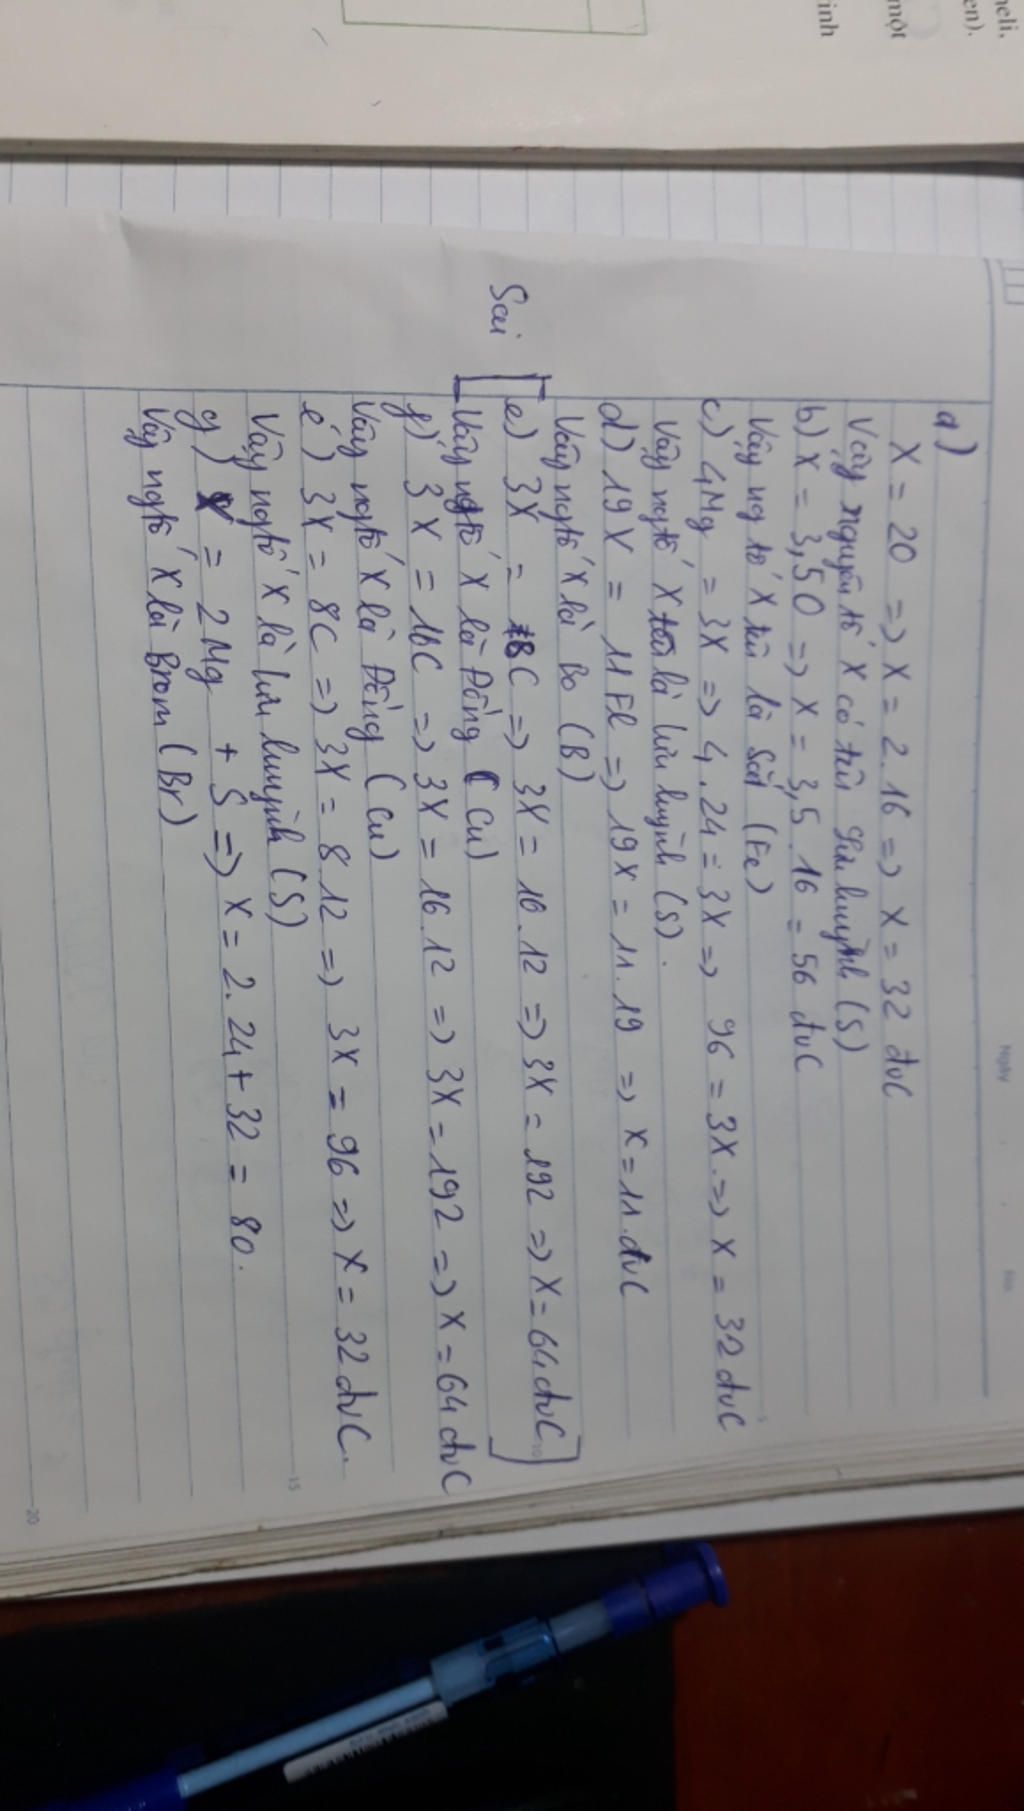 heli,
en).
một
rinh
Ngày
No.
a)
X = 2O => X = 2.16 => X = 32 đvC
Vậy nguyên tố X có tên lưu huỳnh (S)
b) X = 3,5O => X = 3,5.16 = 56 đvC
Vậy ng tố X tên là Sắt (Fe)
c) 4Mg = 3X => 4.24 = 3X => 96 = 3X => X = 32 đvC
Vậy ngtố X là lưu huỳnh (S).
d) 19X = 11Fl => 19X = 11.19 => X = 11.đvC
Vậy ngtố X là Bo (B)
Sai
e) 3X = 16C => 3X = 16.12 => 3X = 192 => X = 64đvC
Vậy ngtố X là Đồng (Cu)
f) 3X = 16C => 3X = 16.12 => 3X = 192 => X = 64 đvC
Vậy ngtố X là Đồng (Cu)
e) 3X = 8C => 3X = 8.12 => 3X = 96 => X = 32 đvC.
Vậy ngtố X là lưu huỳnh (S)
g) X = 2Mg + S => X = 2.24 + 32 = 80.
Vậy ngtố X là Brom (Br)
5
10
15
20